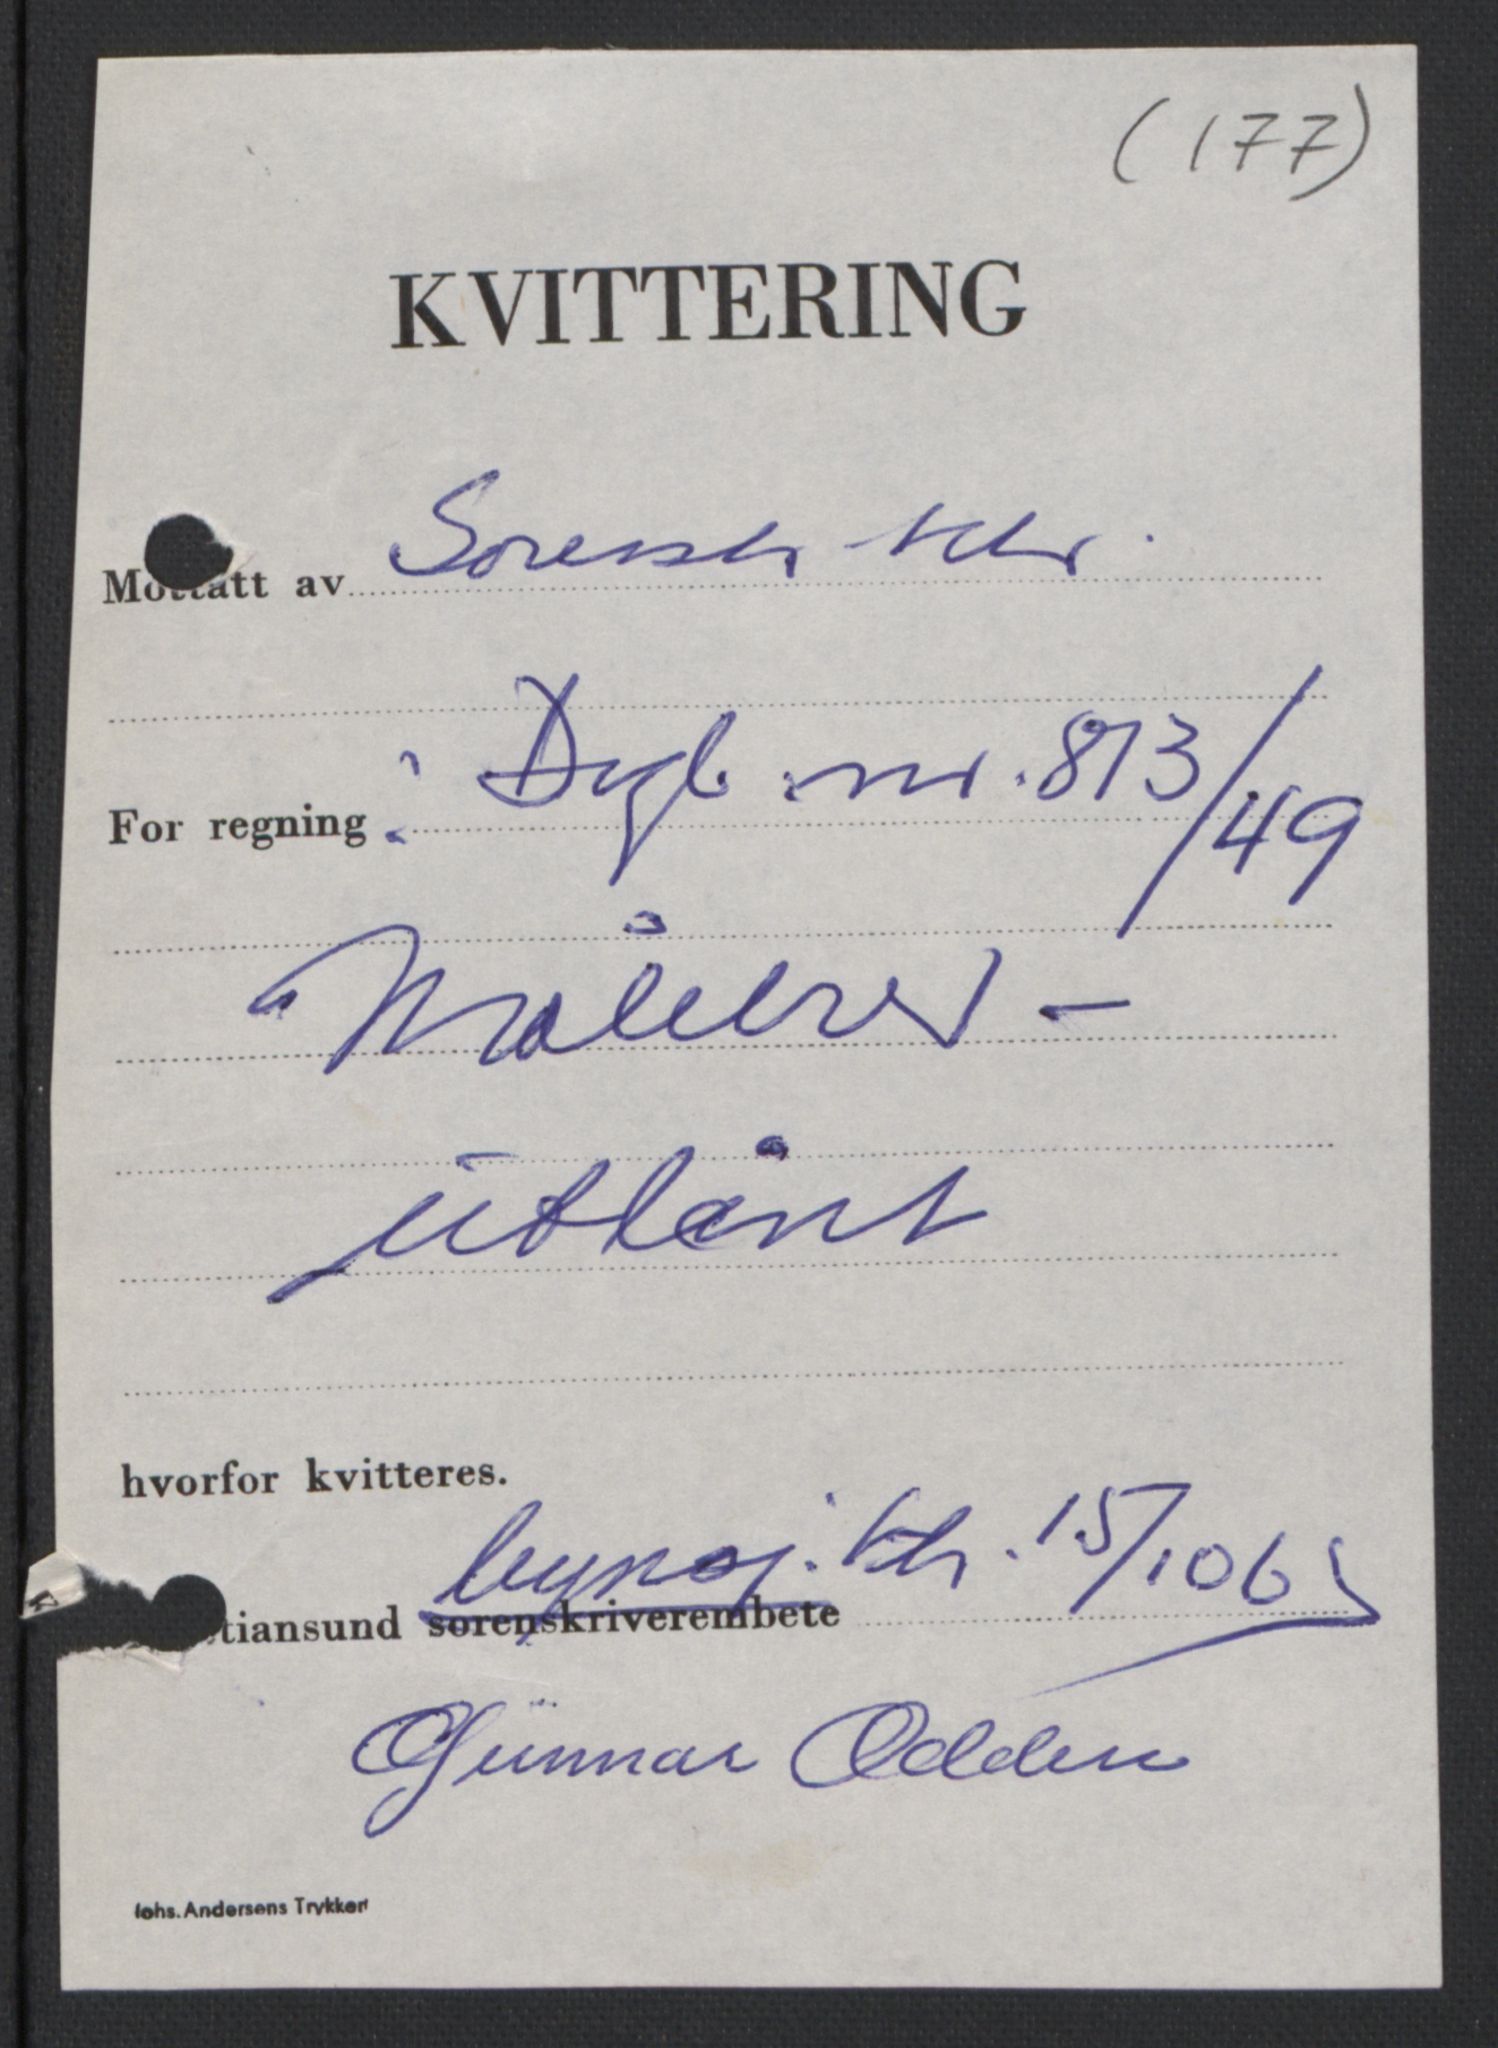 (177)
KVITTERING
Mottatt av Sorensk Khr.
For regning : Dgb. nr. 813/49
"Målebrev" –
utlånt
hvorfor kvitteres.
Khr. 15/10 65
tiansund sorenskriverembete
Gunnar Odden
Johs. Andersens Trykkeri